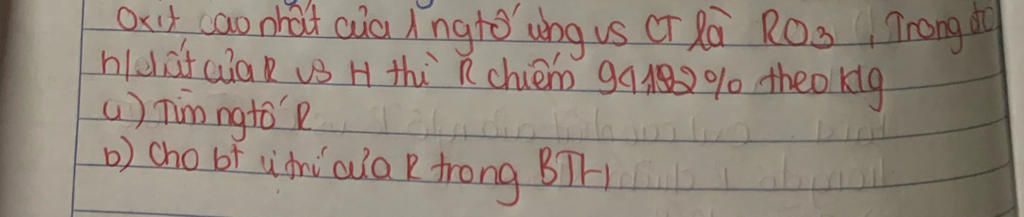 Oxit cao nhất của 1 ngtố ứng vs CT là RO3, Trong đó
h/chất của R vs H thì R chiếm 94,182% theo klg
a) Tìm ngtố R
b) Cho bt vị trí của R trong BTH